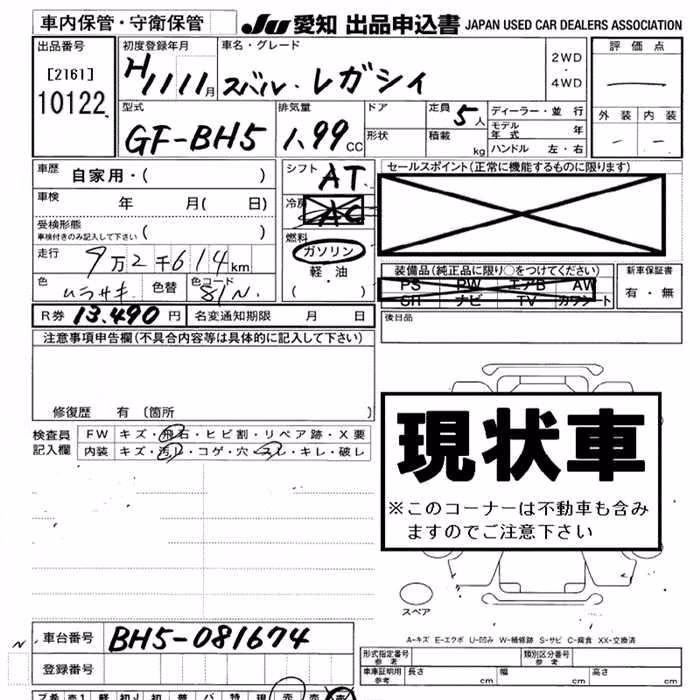 車内保管・守衛保管 JU 愛知 出品申込書 JAPAN USED CAR DEALERS ASSOCIATION
出品番号 初度登録年月 車名・グレード 2WD・4WD 評価点
[2161] H11 11月 スバル・レガシィ
10122 外装 内装
型式 排気量 ドア 定員 5人 ディーラー・並行
GF-BH5 1.99CC 形状 積載 kg モデル年式 年
ハンドル 左・右
車歴 自家用・( ) シフト AT セールスポイント(正常に機能するものに限ります)
車検 年 月( 日) 冷房 AC
受検形態 車検付きのみ記入して下さい ( ) 燃料
走行 9万2千614km ガソリン
軽油
色 ムラサキ 色替 色コード 81N ・( ) 装備品(純正品に限り○をつけてください) 新車保証書
PS PW エアB AW 有・無
SR ナビ TV カワシート
R券 13,490円 名変通知期限 月 日 後日品
注意事項申告欄(不具合内容等は具体的に記入して下さい)
修復歴 有 〔箇所 〕
検査員 FW キズ・飛石・ヒビ割・リペア跡・X要
記入欄 内装 キズ・汚レ・コゲ・穴・スレ・キレ・破レ
現状車
※このコーナーは不動車も含み
ますのでご注意下さい
スペア
A-キズ E-エクボ U-凹み W-補修跡 S-サビ C-腐食 XX-交換済
N 車台番号 BH5-081674
登録番号
形式指定番号 参考 類別区分番号 参考
車庫証明用 参考 長さ cm 幅 cm 高さ cm